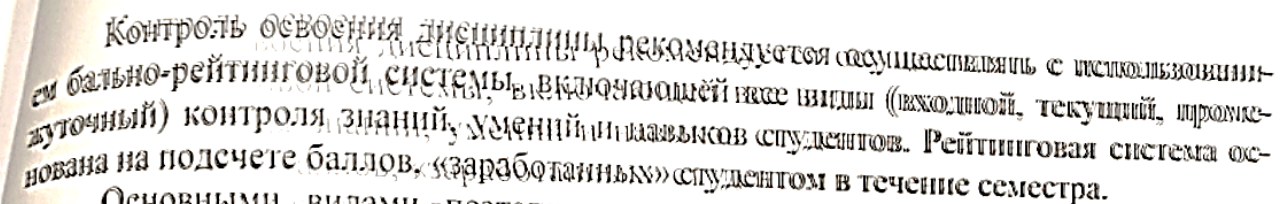 Контроль освоения дисциплины рекомендуется осуществлять с использовани-
ем бально-рейтинговой системы, включающей все виды (входной, текущий, проме-
жуточный) контроля знаний, умений и навыков студентов. Рейтинговая система ос-
нована на подсчете баллов, «заработанных» студентом в течение семестра.
Основными видами